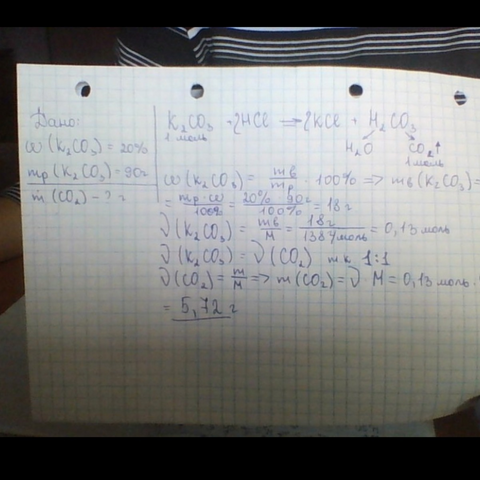 Дано:
ω(K₂CO₃) = 20%
mр(K₂CO₃) = 90г
m(CO₂) - ? г
K₂CO₃ + 2HCl ⟹ 2KCl + H₂CO₃
1 моль
H₂O CO₂↑
1 моль
ω(K₂CO₃) = mв/mр · 100% => mв(K₂CO₃) =
= mр·ω/100% = 20%·90г/100% = 18г
ν(K₂CO₃) = mв/M = 18г/138г/моль = 0,13 моль
ν(K₂CO₃) = ν(CO₂) т.к 1:1
ν(CO₂) = m/M => m(CO₂) = ν·M = 0,13 моль·
= 5,72 г